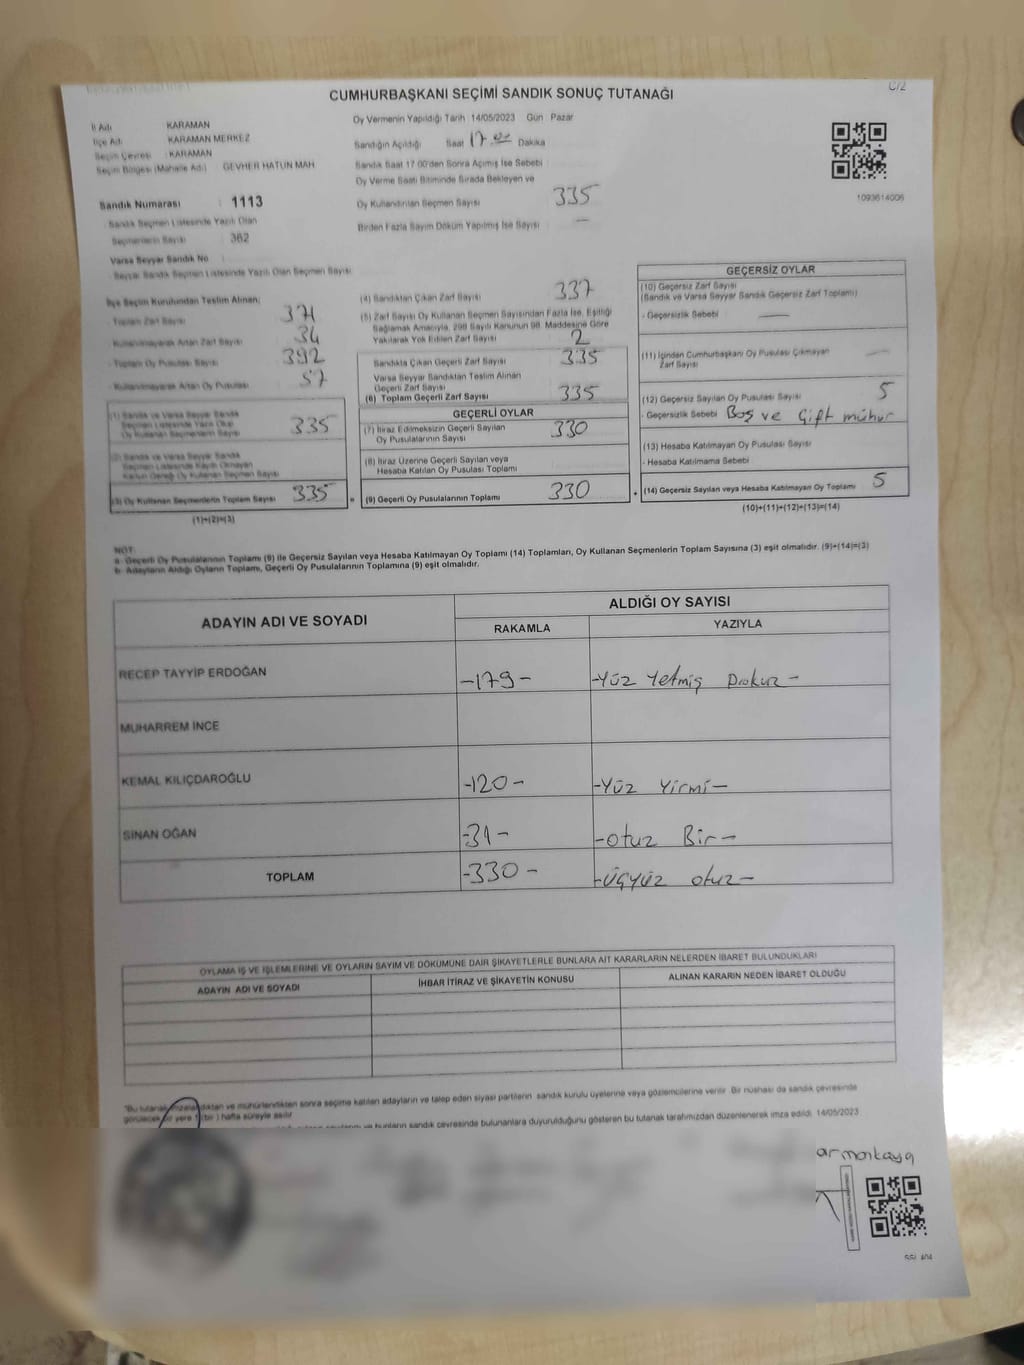 C/2
CUMHURBAŞKANI SEÇİMİ SANDIK SONUÇ TUTANAĞI
İl Adı KARAMAN
İlçe Adı KARAMAN MERKEZ
Seçim Çevresi : KARAMAN
Seçim Bölgesi (Mahalle Adı) GEVHER HATUN MAH
Sandık Numarası : 1113
Sandık Seçmen Listesinde Yazılı Olan
Seçmenlerin Sayısı : 362
Varsa Seyyar Sandık No
Seyyar Sandık Seçmen Listesinde Yazılı Olan Seçmen Sayısı
Oy Vermenin Yapıldığı Tarih 14/05/2023 Gün Pazar
Sandığın Açıldığı Saat 17.00 Dakika
Sandık Saat 17 00'den Sonra Açımış İse Sebebi
Oy Verme Saati Bitiminde Sırada Bekleyen ve
Oy Kullandırılan Seçmen Sayısı 335
Birden Fazla Sayım Döküm Yapılmış İse Sayısı —
1093614006
İlçe Seçim Kurulundan Teslim Alınan;
- Toplam Zarf Sayısı 371
- Kullanılmayarak Artan Zarf Sayısı 34
- Toplam Oy Pusulası Sayısı 392
- Kullanılmayarak Artan Oy Pusulası 57
(1) Sandık ve Varsa Seyyar Sandık
Seçmen Listesinde Yazılı Olup
Oy Kullanan Seçmenlerin Sayısı 335
(2) Sandık ve Varsa Seyyar Sandık
Seçmen Listesinde Kaydı Olmayan
Kanun Gereği Oy Kullanan Seçmen Sayısı
(3) Oy Kullanan Seçmenlerin Toplam Sayısı 335
(1)+(2)=(3)
(4) Sandıktan Çıkan Zarf Sayısı 337
(5) Zarf Sayısı Oy Kullanan Seçmen Sayısından Fazla İse, Eşitliği
Sağlamak Amacıyla, 298 Sayılı Kanunun 98. Maddesine Göre
Yakılarak Yok Edilen Zarf Sayısı 2
Sandıkta Çıkan Geçerli Zarf Sayısı 335
Varsa Seyyar Sandıktan Teslim Alınan
Geçerli Zarf Sayısı
(6) Toplam Geçerli Zarf Sayısı 335
GEÇERLİ OYLAR
(7) İtiraz Edilmeksizin Geçerli Sayılan
Oy Pusulalarının Sayısı 330
(8) İtiraz Üzerine Geçerli Sayılan veya
Hesaba Katılan Oy Pusulası Toplamı
= (9) Geçerli Oy Pusulalarının Toplamı 330
GEÇERSİZ OYLAR
(10) Geçersiz Zarf Sayısı
(Sandık ve Varsa Seyyar Sandık Geçersiz Zarf Toplamı)
- Geçersizlik Sebebi —
(11) İçinden Cumhurbaşkanı Oy Pusulası Çıkmayan
Zarf Sayısı —
(12) Geçersiz Sayılan Oy Pusulası Sayısı 5
- Geçersizlik Sebebi Boş ve Çift mühür
(13) Hesaba Katılmayan Oy Pusulası Sayısı
- Hesaba Katılmama Sebebi
+ (14) Geçersiz Sayılan veya Hesaba Katılmayan Oy Toplamı 5
(10)+(11)+(12)+(13)=(14)
NOT:
a- Geçerli Oy Pusulalarının Toplamı (9) ile Geçersiz Sayılan veya Hesaba Katılmayan Oy Toplamı (14) Toplamları, Oy Kullanan Seçmenlerin Toplam Sayısına (3) eşit olmalıdır. (9)+(14)=(3)
b- Adayların Aldığı Oyların Toplamı, Geçerli Oy Pusulalarının Toplamına (9) eşit olmalıdır.
ADAYIN ADI VE SOYADI ALDIĞI OY SAYISI
RAKAMLA YAZIYLA
RECEP TAYYİP ERDOĞAN -179- -Yüz Yetmiş Dokuz-
MUHARREM İNCE
KEMAL KILIÇDAROĞLU -120- -Yüz Yirmi-
SİNAN OĞAN -31- -otuz Bir-
TOPLAM -330- -üçyüz otuz-
OYLAMA İŞ VE İŞLEMLERİNE VE OYLARIN SAYIM VE DÖKÜMÜNE DAİR ŞİKAYETLERLE BUNLARA AİT KARARLARIN NELERDEN İBARET BULUNDUKLARI
ADAYIN ADI VE SOYADI İHBAR İTİRAZ VE ŞİKAYETİN KONUSU ALINAN KARARIN NEDEN İBARET OLDUĞU
"Bu tutanak imzalandıktan ve mühürlendikten sonra seçime katılan adayların ve talep eden siyasi partilerin sandık kurulu üyelerine veya gözlemcilerine verilir. Bir nüshası da sandık çevresinde
görülecek bir yere 1 (bir) hafta süreyle asılır
ve bunların sandık çevresinde bulunanlara duyurulduğunu gösteren bu tutanak tarafımızdan düzenlenerek imza edildi. 14/05/2023